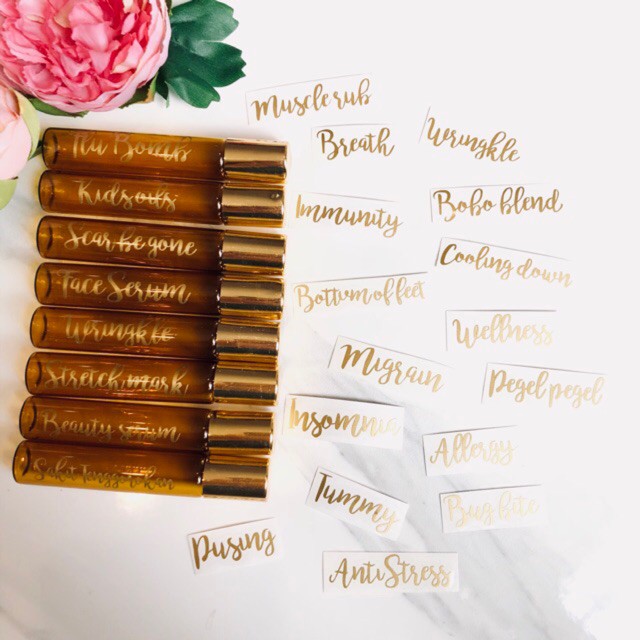 Flu Bomb
Kids oils
Scar be gone
Face Serum
Wringkle
Stretch mark
Beauty serum
Sakit
Muscle rub
Breath
Wringkle
Immunity
Bobo blend
Cooling down
Bottum of feet
Wellness
Migrain
Pegel pegel
Insomnia
Allergy
Tummy
Bug bite
Pusing
Anti Stress